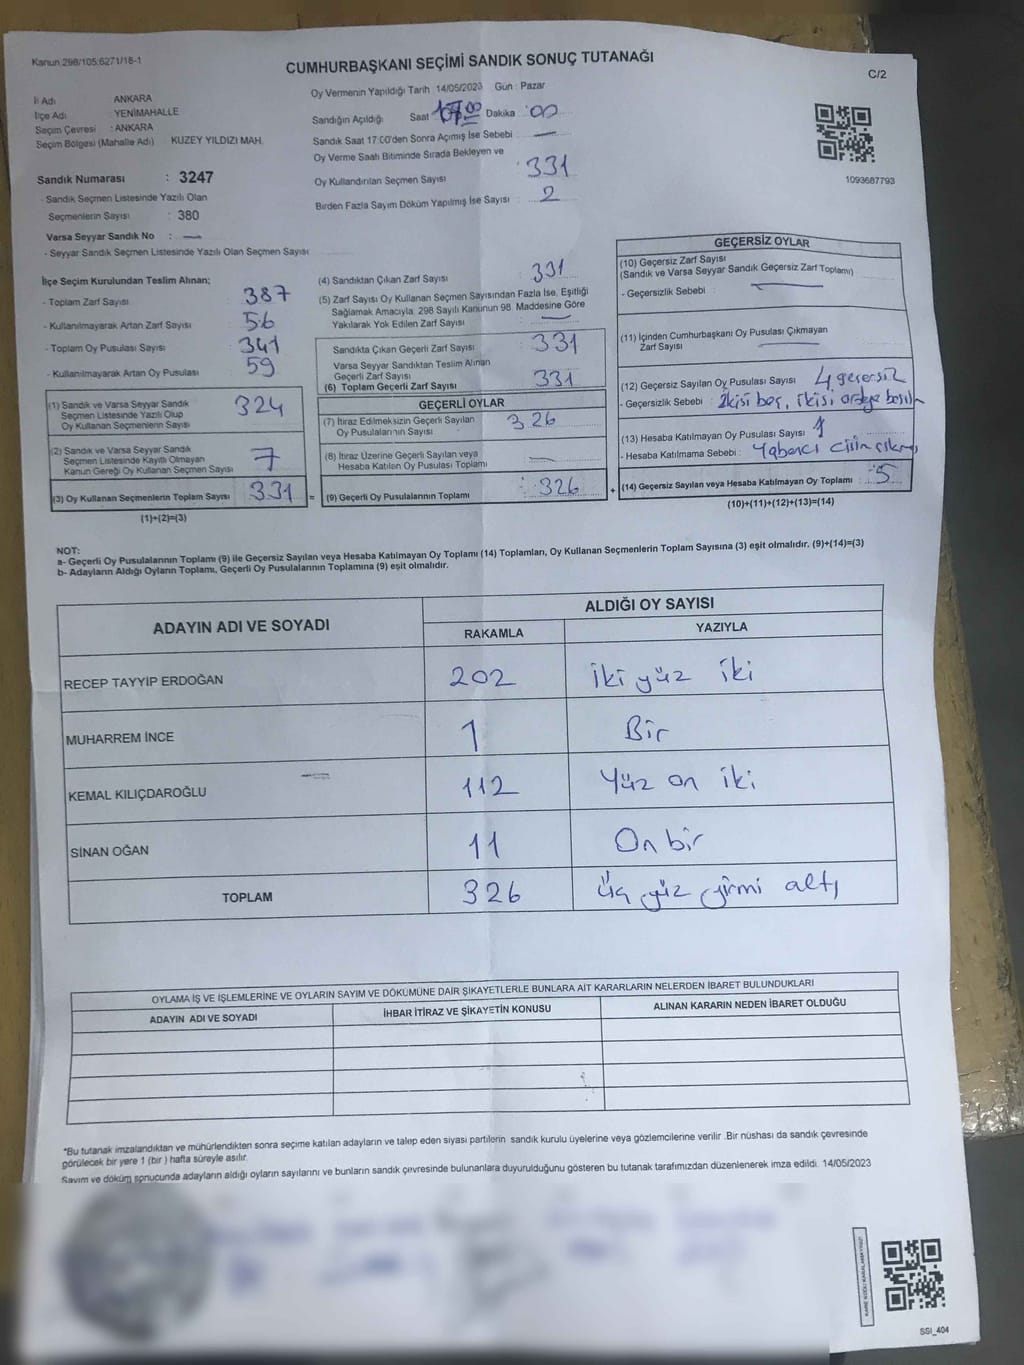 Kanun 298/105;6271/18-1
CUMHURBAŞKANI SEÇİMİ SANDIK SONUÇ TUTANAĞI
C/2
İl Adı ANKARA
İlçe Adı YENİMAHALLE
Seçim Çevresi : ANKARA
Seçim Bölgesi (Mahalle Adı) KUZEY YILDIZI MAH.
Sandık Numarası : 3247
- Sandık Seçmen Listesinde Yazılı Olan
Seçmenlerin Sayısı : 380
Varsa Seyyar Sandık No : —
- Seyyar Sandık Seçmen Listesinde Yazılı Olan Seçmen Sayısı
Oy Vermenin Yapıldığı Tarih : 14/05/2023 Gün : Pazar
Sandığın Açıldığı Saat 17.00 Dakika : 00
Sandık Saat 17:00'den Sonra Açımış İse Sebebi : —
Oy Verme Saati Bitiminde Sırada Bekleyen ve
Oy Kullandırılan Seçmen Sayısı : 331
Birden Fazla Sayım Döküm Yapılmış İse Sayısı : 2
1093687793
İlçe Seçim Kurulundan Teslim Alınan;
- Toplam Zarf Sayısı : 387
- Kullanılmayarak Artan Zarf Sayısı : 56
- Toplam Oy Pusulası Sayısı : 341
- Kullanılmayarak Artan Oy Pusulası : 59
(1) Sandık ve Varsa Seyyar Sandık
Seçmen Listesinde Yazılı Olup
Oy Kullanan Seçmenlerin Sayısı 324
(2) Sandık ve Varsa Seyyar Sandık
Seçmen Listesinde Kayıtlı Olmayan
Kanun Gereği Oy Kullanan Seçmen Sayısı 7
(3) Oy Kullanan Seçmenlerin Toplam Sayısı : 331 =
(1)+(2)=(3)
(4) Sandıktan Çıkan Zarf Sayısı : 331
(5) Zarf Sayısı Oy Kullanan Seçmen Sayısından Fazla İse, Eşitliği
Sağlamak Amacıyla, 298 Sayılı Kanunun 98. Maddesine Göre
Yakılarak Yok Edilen Zarf Sayısı : —
Sandıkta Çıkan Geçerli Zarf Sayısı : 331
Varsa Seyyar Sandıktan Teslim Alınan
Geçerli Zarf Sayısı
(6) Toplam Geçerli Zarf Sayısı : 331
GEÇERLİ OYLAR
(7) İtiraz Edilmeksizin Geçerli Sayılan
Oy Pusulalarının Sayısı : 326
(8) İtiraz Üzerine Geçerli Sayılan veya
Hesaba Katılan Oy Pusulası Toplamı : —
(9) Geçerli Oy Pusulalarının Toplamı : 326 +
GEÇERSİZ OYLAR
(10) Geçersiz Zarf Sayısı
(Sandık ve Varsa Seyyar Sandık Geçersiz Zarf Toplamı)
- Geçersizlik Sebebi : —
(11) İçinden Cumhurbaşkanı Oy Pusulası Çıkmayan
Zarf Sayısı : —
(12) Geçersiz Sayılan Oy Pusulası Sayısı : 4 geçersiz
- Geçersizlik Sebebi : İkisi boş, ikisi ortaya
(13) Hesaba Katılmayan Oy Pusulası Sayısı : 1
- Hesaba Katılmama Sebebi : Yabancı cisim
(14) Geçersiz Sayılan veya Hesaba Katılmayan Oy Toplamı : 5
(10)+(11)+(12)+(13)=(14)
NOT:
a- Geçerli Oy Pusulalarının Toplamı (9) ile Geçersiz Sayılan veya Hesaba Katılmayan Oy Toplamı (14) Toplamları, Oy Kullanan Seçmenlerin Toplam Sayısına (3) eşit olmalıdır. (9)+(14)=(3)
b- Adayların Aldığı Oyların Toplamı, Geçerli Oy Pusulalarının Toplamına (9) eşit olmalıdır.
ADAYIN ADI VE SOYADI
ALDIĞI OY SAYISI
RAKAMLA YAZIYLA
RECEP TAYYİP ERDOĞAN 202 İki yüz iki
MUHARREM İNCE 1 Bir
KEMAL KILIÇDAROĞLU 112 Yüz on iki
SİNAN OĞAN 11 On bir
TOPLAM 326 Üç yüz yirmi altı
OYLAMA İŞ VE İŞLEMLERİNE VE OYLARIN SAYIM VE DÖKÜMÜNE DAİR ŞİKAYETLERLE BUNLARA AİT KARARLARIN NELERDEN İBARET BULUNDUKLARI
ADAYIN ADI VE SOYADI İHBAR İTİRAZ VE ŞİKAYETİN KONUSU ALINAN KARARIN NEDEN İBARET OLDUĞU
*Bu tutanak imzalandıktan ve mühürlendikten sonra seçime katılan adayların ve talep eden siyasi partilerin sandık kurulu üyelerine veya gözlemcilerine verilir .Bir nüshası da sandık çevresinde
görülecek bir yere 1 (bir ) hafta süreyle asılır.
Sayım ve döküm sonucunda adayların aldığı oyların sayılarını ve bunların sandık çevresinde bulunanlara duyurulduğunu gösteren bu tutanak tarafımızdan düzenlenerek imza edildi. 14/05/2023
SSI_404